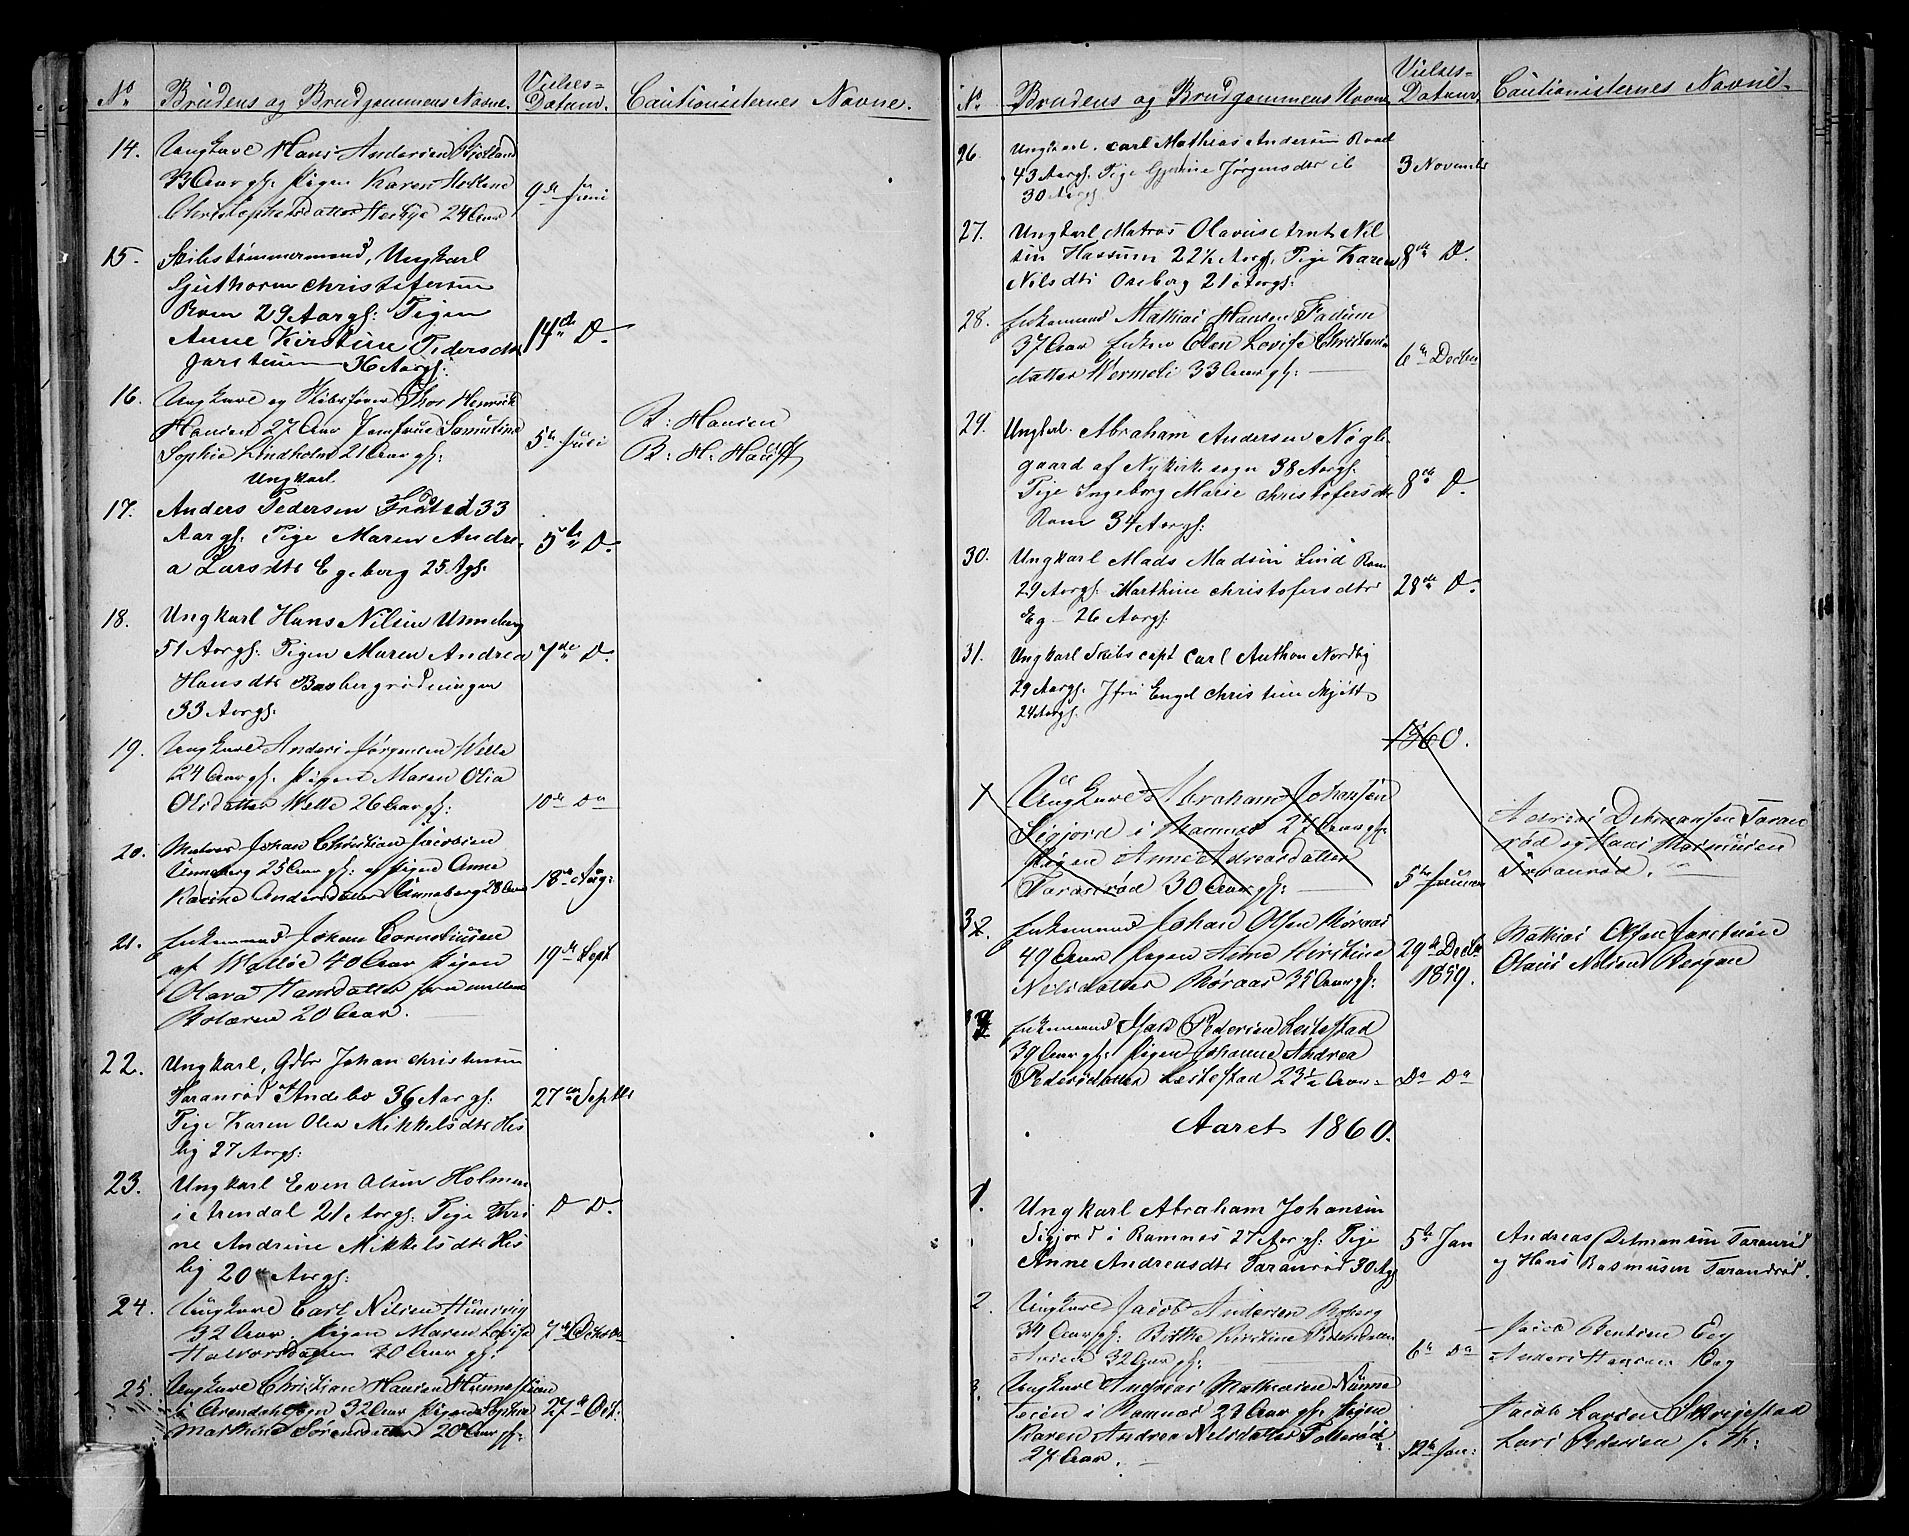 No Brudens og Brudgommens Navne. Vielses-Datum. Cautionisternes Navne.
14. Ungkarl Hans Andersen
33 Aar gl: Pigen Karen
Christophersdatter 24 Aar
9de Juni
15. Skibstømmermand, Ungkarl
Guthorm Christofersen
Rom 29 Aar gl: Pigen
Anne Kirstine Pedersdtr
Jarsteuen 36 Aar gl:
14de D.
16. Ungkarl og Skibsfører Thor Henrik
Hansen 27 Aar Jomfrue
Sophie Lindholm 21 Aar gl:
5te Juli
B: Hansen
B: H: Hauff
Ungkarl
17. Anders Pedersen 33
Aar gl: Pige Maren Andre-
a Larsdtr Egeberg 25 Agl:
5te D.
18. Ungkarl Hans Nilsen Unneberg
51 Aar gl: Pigen Maren Andrea
Hansdtr Basbergrødningen
33 Aar gl:
7de D.
19. Ungkarl Anders Jørgensen Welle
24 Aar gl: Pigen Maren Olia
Olsdatter Welle 26 Aar gl:
10de Do
20. Matros Johan Christian Jacobsen
Unneberg 25 Aar gl: Pigen Anne
Karine Andersdatter Unneberg 28 Aar
18de Aug:
21. Enkemand Johan Cornelius
af Walløe 40 Aar Pigen
Olava Hansdatter
Bolærne 20 Aar.
19de Sept
22. Ungkarl, Gdbr Johan Christensen
Taranrød i Andebo 36 Aar gl:
Pige Karen Olea Mikkelsdtr Hes
by 27 Aar gl:
27de Septbr
23. Ungkarl Even Olsen Holmen
i Arendal 21 Aar gl: Pige
ne Andrine Mikkelsdtr Hes
by 20 Aar gl:
D D.
24. Ungkarl Carl Nilsen Hunsvig
32 Aar. Pigen Maren Lovise
Halvorsdatter 20 Aar gl:
7de Octobr
25. Ungkarl Christian Hansen
i Arendahlsogn 32 Aar Pigen Sophie
Mathilde Sørensdatter 20 Aar gl:
27de Oct:
No Brudens og Brudgommens Navne Vielses-Datum. Cautionisternes Navne.
26. Ungkarl. Carl Mathias Andersen
43 Aar gl. Pige Gjerine Jørgensdtr ib
30 Aar gl.
3 November
27. Ungkarl Matros Olavus Arnt Nil
sen Hassum 22½ Aar gl. Pige Karen
Nilsdtr Oseberg 21 Aar gl:
8de D.
28. Enkemand Mathias Hansen Fadum
37 Aar Enke Elen Lovise Christians
datter Wermeli 33 Aar gl:
6te Decbr
29. Ungkarl. Abraham Andersen Nøgle
gaard af Nykirke sogn 38 Aar gl.
Pige Ingeborg Marie Christofersdtr
Rom 34 Aar gl:
8de D.
30. Ungkarl Mads Madsen Lind Rom
29 Aar gl: Marthine Christofersdtr
Eg 26 Aar gl:
28de D.
31. Ungkarl Skibscapt Carl Anthon Nordby
29 Aar gl. Jfru Engel Christine
24 Aar gl.
1860.
1 Ungkarl Abraham Johansen
Sigjord i Ramnes 27 Aar gl:
Pigen Anne Andreasdatter
Taranrød 30 Aar gl:
5te Januar
Andreas Detmansen Taran
rød og Hans Rasmusen
Taranrød.
32. Enkemand Johan Olsen Røraas
49 Aar Pigen Anne Kirstine
Nilsdatter Røraas 35 Aar gl:
29de Decbr
1859.
Mathias Olsen
Olaus Nilsen Bergan
33 Enkemand Pedersen Leikestad
39 Aar gl: Pigen Johanne Andrea
Pedersdatter Leikestad 23½ Aar
Do Do
Aaret 1860.
1. Ungkarl Abraham Johansen
Sigjord i Ramnes 27 Aar gl: Pige
Anne Andreasdtr Taranrød 30 Agl
5te Jan
Andreas Detmansen Taranrød
og Hans Rasmusen Taranrød.
2. Ungkarl Jacob Andersen Roberg
34 Aar gl: Birthe Kirstine Pedersdatter
32 Aar gl:
6te Do
Jacob Berntsen Eeg
Anders Hansen Eeg
3. Ungkarl Andreas Mathiesen
i Ramnes 28 Aar gl: Pigen
Karen Andrea Nilsdatter
27 Aar.
12te Jan:
Jacob Larsen
Lars Pedersen